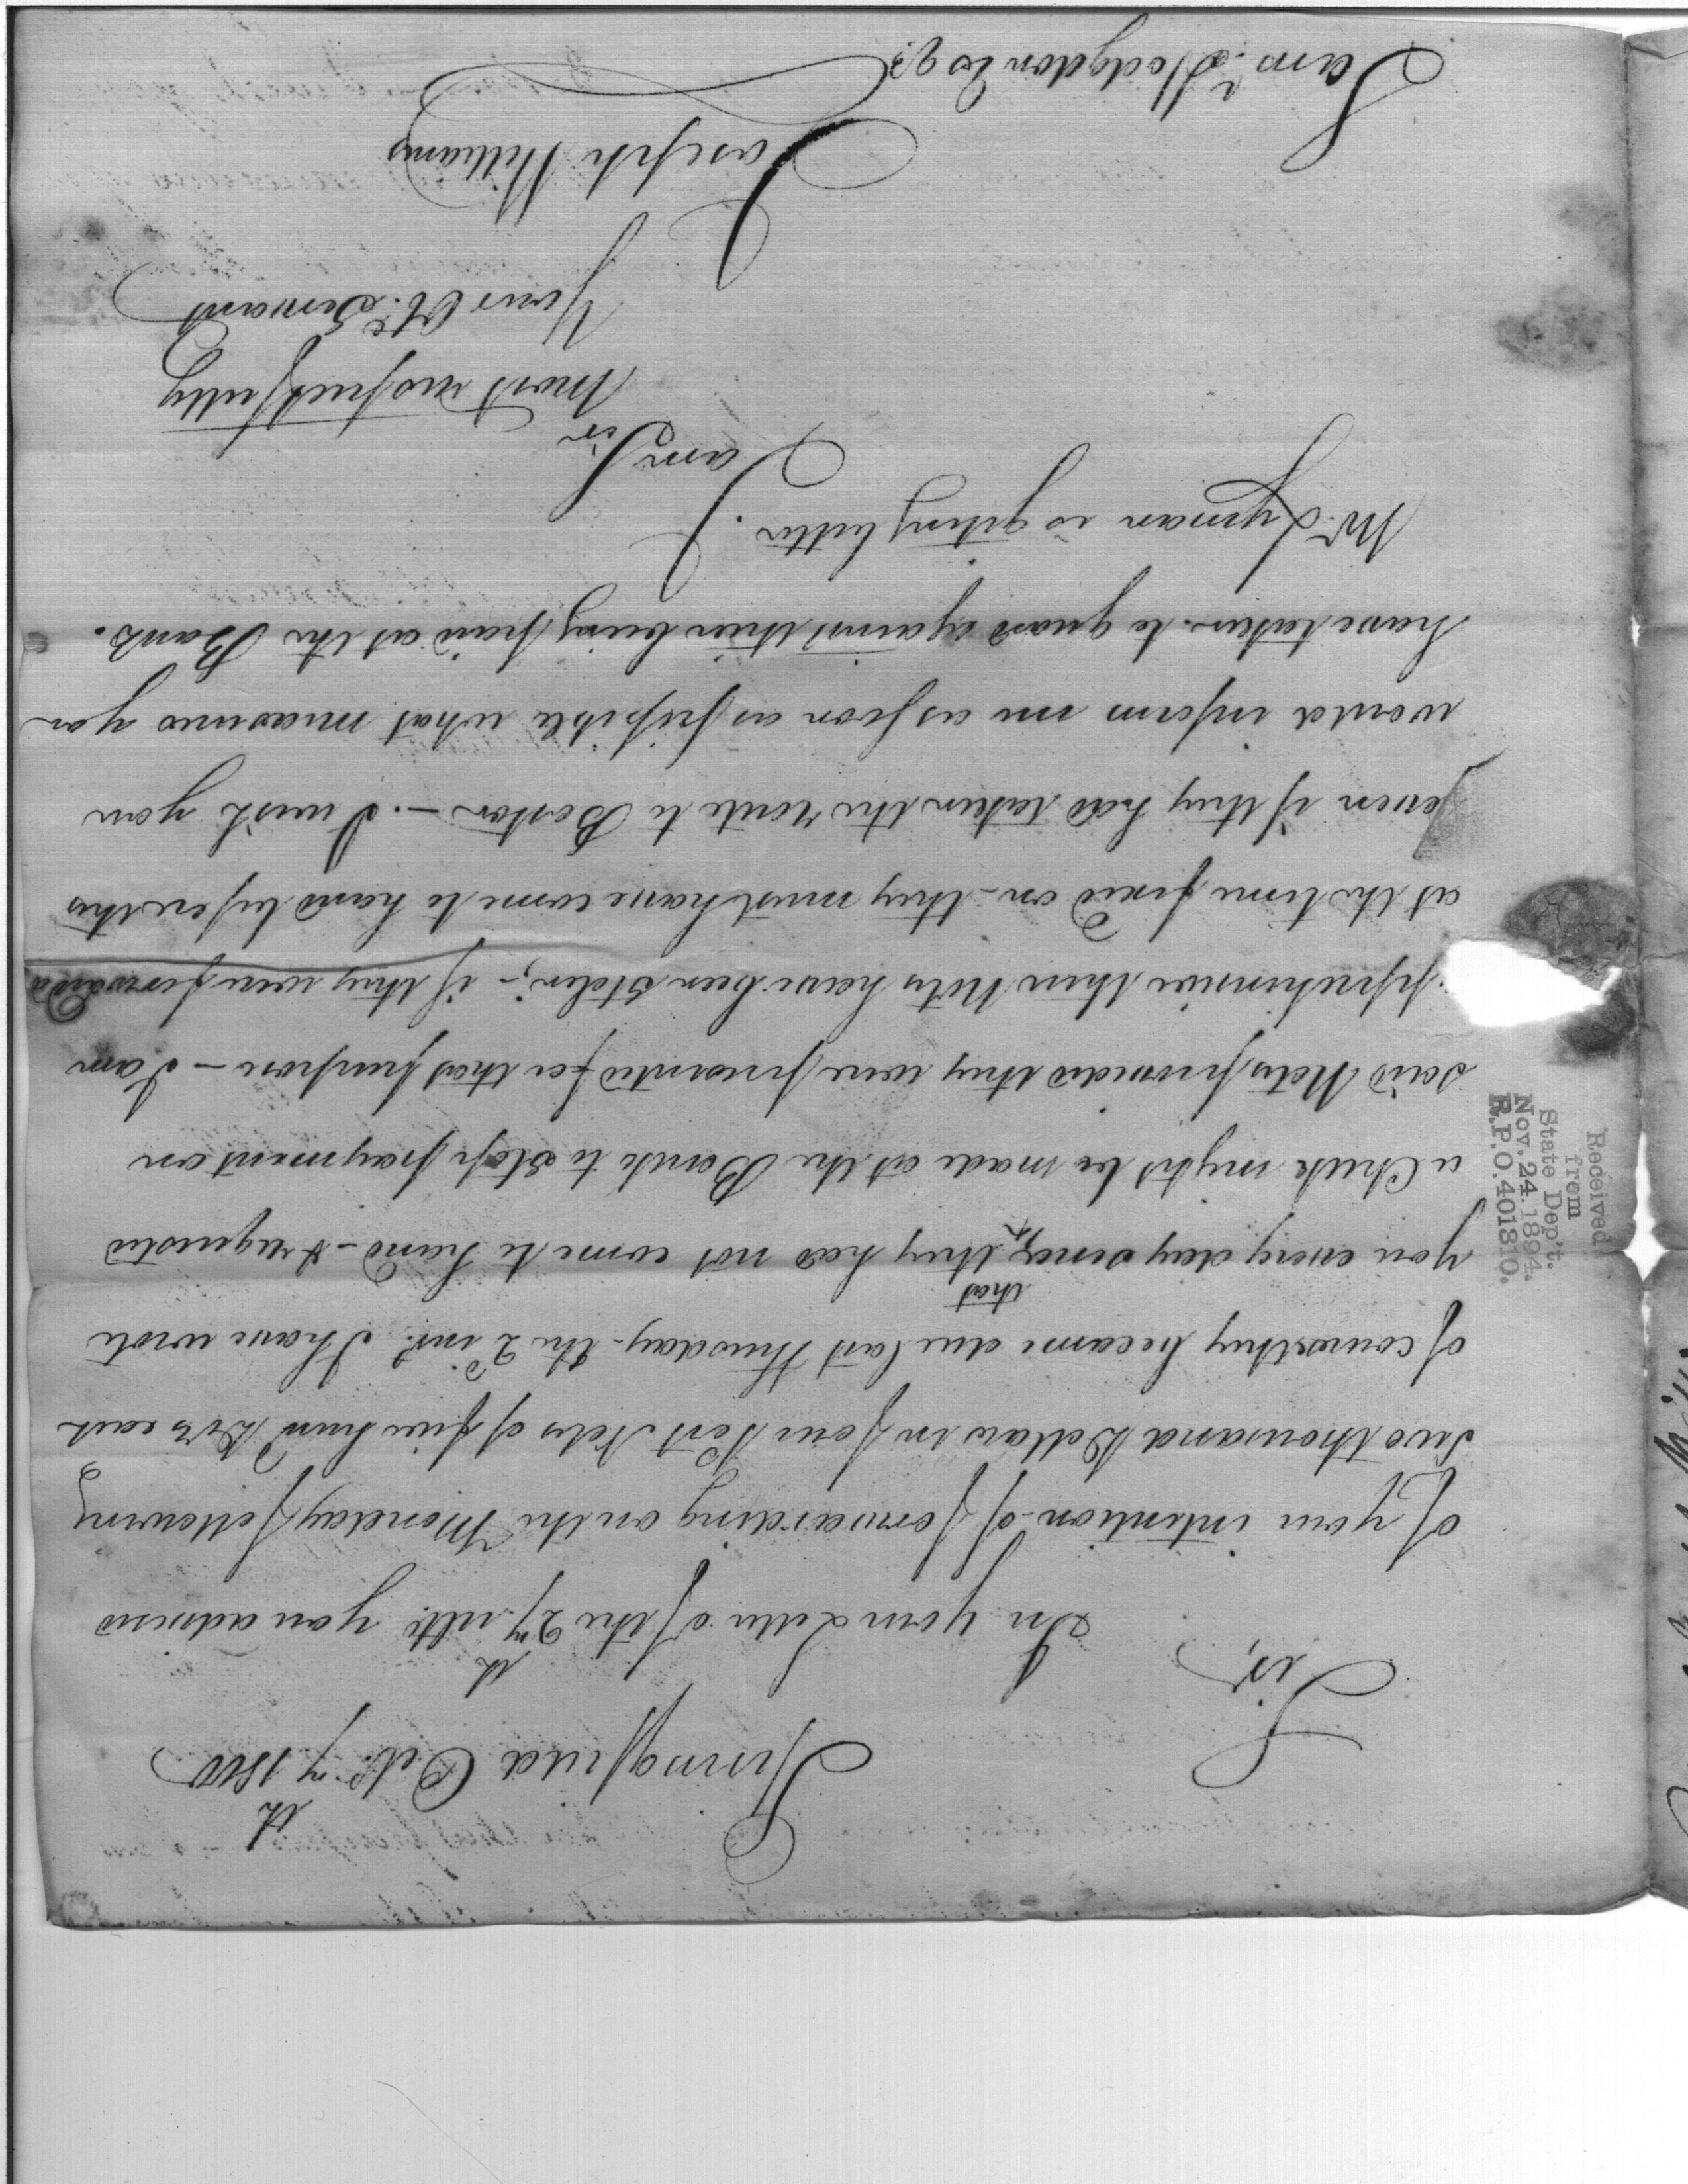 Springfield Octr. 7th 1800
Sir,
In your Letter of the 27th ulto. you advised
of your intention of forwarding on the Monday following
two thousand Dollars in four Post Notes of five hund Dol's each
of course they became due last Thursday - the 2d inst. I have wrote
you every day since, that they had not come to hand - & requested
a Check might be made at the Bank to stop payment on
said Notes provided they were presented for that purpose - I am
pprehensive these Notes have been Stolen; - if they were forwarded
at the time fixed on - they must have come to hand before this
even if they had taken the route to Boston. - I wish you
would inform me as soon as possible what measures you
have taken to guard against their being paid at the Bank.
Mr. Lyman is geting better.
I am Sir
most respectfully
Your Obt. Servant
Joseph Williams
Saml. Hodgdon Esqr.
Received
from
State Dep't.
Nov. 24. 1894.
R.P.O. 401810.